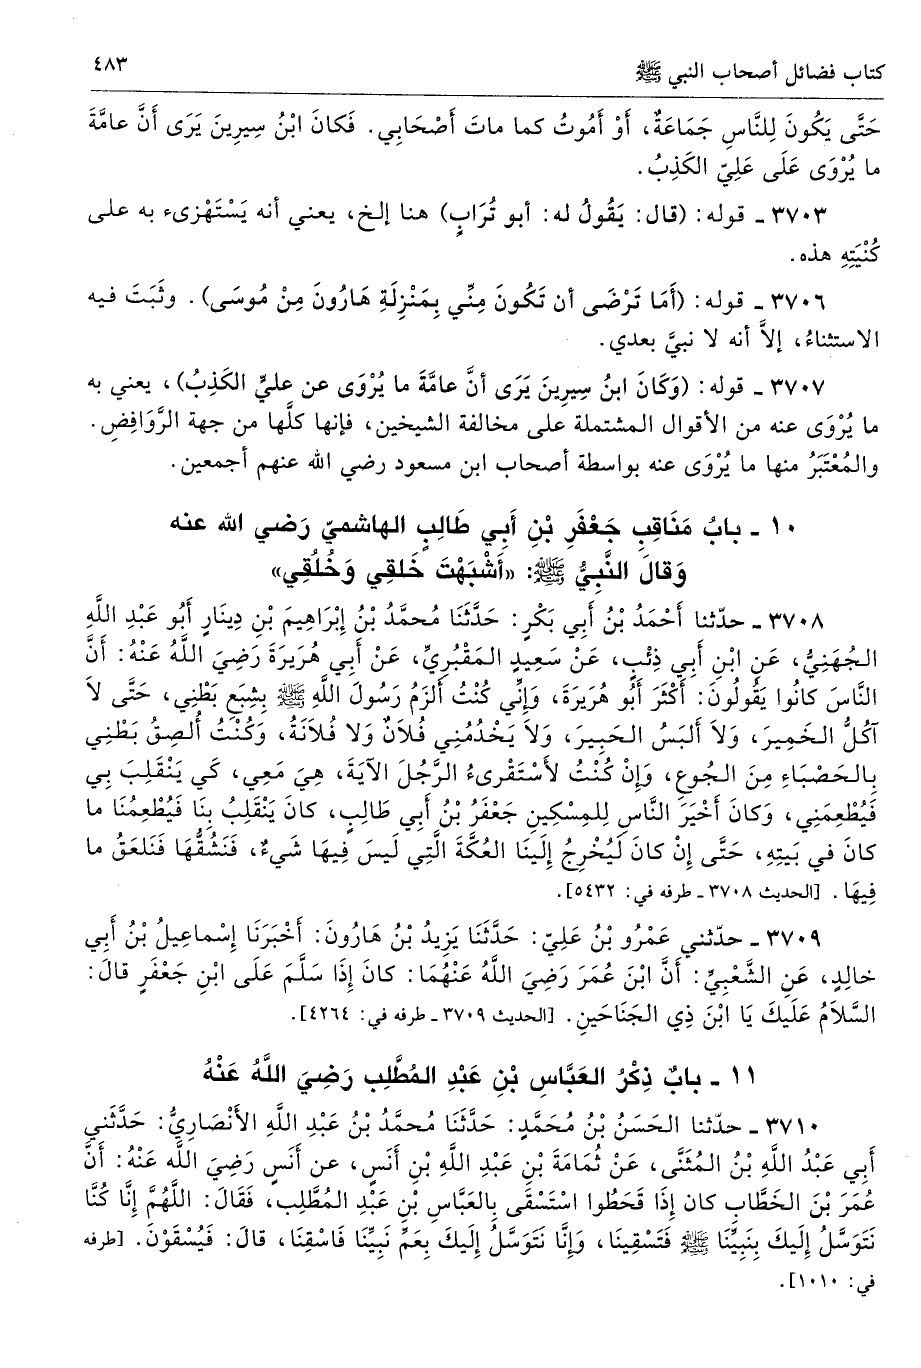 كتاب فضائل أصحاب النبي ﷺ ٤٨٣
حَتَّى يَكُونَ لِلنَّاسِ جَمَاعَةٌ، أَوْ أَمُوتُ كما ماتَ أَصْحَابِي. فَكانَ ابْنُ سِيرِينَ يَرَى أَنَّ عامَّةَ
ما يُرْوَى عَلَى عَلِيّ الكَذِبُ.
٣٧٠٣ ـ قوله: (قال: يَقُولُ له: أبو تُرَابٍ) هنا إلخ، يعني أنه يَسْتَهْزِىء به على
كُنْيَتِهِ هذه.
٣٧٠٦ ـ قوله: (أَمَا تَرْضَى أن تَكُونَ مِنِّي بِمَنْزِلَةِ هَارُونَ مِنْ مُوسَى). وثَبَتَ فيه
الاستثناءُ، إلاَّ أنه لا نبيَّ بعدي.
٣٧٠٧ ـ قوله: (وَكَانَ ابنُ سِيرِينَ يَرَى أنَّ عامَّةَ ما يُرْوَى عن عليٍّ الكَذِبُ)، يعني به
ما يُرْوَى عنه من الأقوال المشتملة على مخالفة الشيخين، فإنها كلَّها من جهة الرَّوَافِضِ.
والمُعْتَبَرُ منها ما يُرْوَى عنه بواسطة أصحاب ابن مسعود رضي الله عنهم أجمعين.
١٠ ـ بابُ مَنَاقِبِ جَعْفَرِ بْنِ أَبِي طَالِبٍ الهاشميّ رَضي الله عنه
وَقالَ النَّبِيُّ ﷺ: «أَشْبَهْتَ خَلقِي وَخُلُقِي»
٣٧٠٨ ـ حدّثنا أَحْمَدُ بْنُ أَبِي بَكْرٍ: حَدَّثَنَا مُحمَّدُ بْنُ إِبْرَاهِيمَ بْنِ دِينَارٍ أَبُو عَبْدِ اللَّهِ
الجُهَنِيُّ، عَنِ ابْنِ أَبِي ذِئْبٍ، عَنْ سَعِيدٍ المَقْبُرِيِّ، عَنْ أَبِي هُرَيرَةَ رَضِيَ اللَّهُ عَنْهُ: أَنَّ
النَّاسَ كانُوا يَقُولُونَ: أَكْثَرَ أَبُو هُرَيرَةَ، وَإِنِّي كُنْتُ أَلزَمُ رَسُولَ اللَّهِ ﷺ بِشِبَعِ بَطْنِي، حَتَّى لاَ
آكُلُ الخَمِيرَ، وَلاَ أَلبَسُ الحَبِيرَ، وَلاَ يَخْدُمُنِي فُلاَنٌ وَلا فُلاَنَةُ، وَكُنْتُ أُلصِقُ بَطْنِي
بِالحَصْبَاءِ مِنَ الجُوعِ، وَإِنْ كُنْتُ لأَسْتَقْرِىءُ الرَّجُلَ الآيَةَ، هِيَ مَعِي، كَي يَنْقَلِبَ بِي
فَيُطْعِمَنِي، وَكانَ أَخْيَرَ النَّاسِ لِلمِسْكِينِ جَعْفَرُ بْنُ أَبِي طَالِبٍ، كانَ يَنْقَلِبُ بِنَا فَيُطْعِمُنَا ما
كانَ في بَيتِهِ، حَتَّى إِنْ كانَ لَيُخْرِجُ إِلَينَا العُكَّةَ الَّتِي لَيسَ فِيهَا شَيءٌ، فَنَشُقُّهَا فَنَلعَقُ ما
فِيهَا. [الحديث ٣٧٠٨ ـ طرفه في: ٥٤٣٢].
٣٧٠٩ ـ حدّثني عَمْرُو بْنُ عَلِيّ: حَدَّثَنَا يَزِيدُ بْنُ هَارُونَ: أَخْبَرَنَا إِسْماعِيلُ بْنُ أَبِي
خالِدٍ، عَنِ الشَّعْبِيِّ: أَنَّ ابْنَ عُمَرَ رَضِيَ اللَّهُ عَنْهُمَا: كانَ إِذَا سَلَّمَ عَلَى ابْنِ جَعْفَرٍ قالَ:
السَّلاَمُ عَلَيكَ يَا ابْنَ ذِي الجَنَاحَينِ. [الحديث ٣٧٠٩ ـ طرفه في: ٤٢٦٤].
١١ ـ بابٌ ذِكْرُ العَبَّاسِ بْنِ عَبْدِ المُطَّلِب رَضِيَ اللَّهُ عَنْهُ
٣٧١٠ ـ حدّثنا الحَسَنُ بْنُ مُحَمَّدٍ: حَدَّثَنَا مُحمَّدُ بْنُ عَبْدِ اللَّهِ الأَنْصَارِيُّ: حَدَّثَنِي
أَبِي عَبْدُ اللَّهِ بْنُ المُثَنَّى، عَنْ ثُمَامَةَ بْنِ عَبْدِ اللَّهِ بْنِ أَنَسٍ، عن أَنَسٍ رَضِيَ اللَّه عَنْهُ: أَنَّ
عُمَرَ بْنَ الخَطَّابِ كان إِذَا قَحَطُوا اسْتَسْقَى بِالعَبَّاسِ بْنِ عَبْدِ المُطَّلِبِ، فَقَالَ: اللَّهُمَّ إِنَّا كُنَّا
نَتَوَسَّلُ إِلَيكَ بِنَبِيِّنَا ﷺ فَتَسْقِينَا، وَإِنَّا نَتَوَسَّلُ إِلَيكَ بِعَمِّ نَبِيِّنَا فَاسْقِنَا، قالَ: فَيُسْقَوْنَ. [طرفه
في: ١٠١٠].